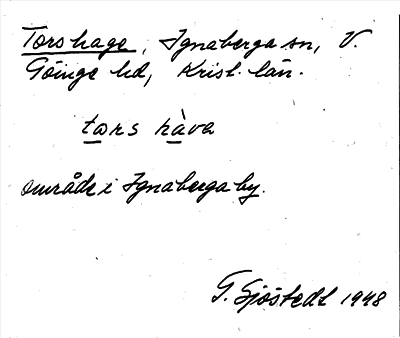 Torshage, Ignaberga sn, V.
Göinge hd, Krist. län.
tors hàva
område i Ignaberga by.
G. Sjöstedt 1948